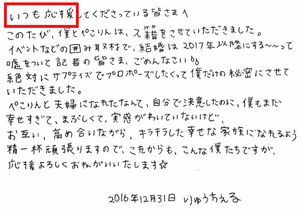 いつも応援してくださっている皆さまへ
このたび、僕とぺこりんは、入籍をさせていただきました。
イベントなどの囲み取材で、結婚は2017年以降にする〜〜って
嘘をついて記者の皆さま、ごめんなさい
絶対にサプライズでプロポーズしたくって僕だけの秘密にさせて
いただきました。
ぺこりんと夫婦になれたなんて、自分で決意したのに、僕もまだ
幸せすぎて、まぶしくて、実感がわいていないけど、
お互い、高め合いながら、キラキラした幸せな家族になれるよう
精一杯頑張りますので、これからも、こんな僕たちですが、
応援よろしくおねがいいたします☆
2016年12月31日 りゅうちぇる